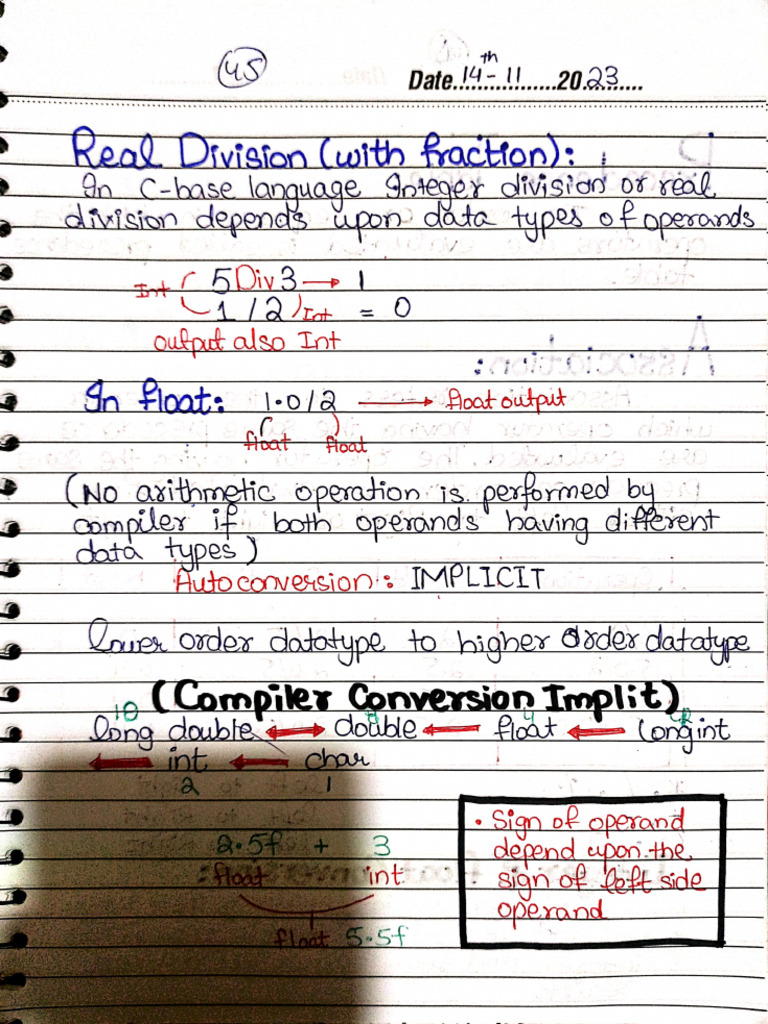 45
Date 14th - 11 2023
Real Division (with fraction):
In C-base language Integer division or real
division depends upon data types of operands
Int 5 Div 3 → 1
1 / 2 Int = 0
output also Int
In float: 1.0/2 → float output
float float
(No arithmetic operation is performed by
compiler if both operands having different
data types)
Auto conversion: IMPLICIT
lower order datatype to higher order datatype
(Compiler Conversion Implit)
10 8 4 4
long double ↔ double ← float ← long int
← int ← char
2 1
2.5f + 3
float int
float 5.5f
• Sign of operand
depend upon the
sign of left side
operand